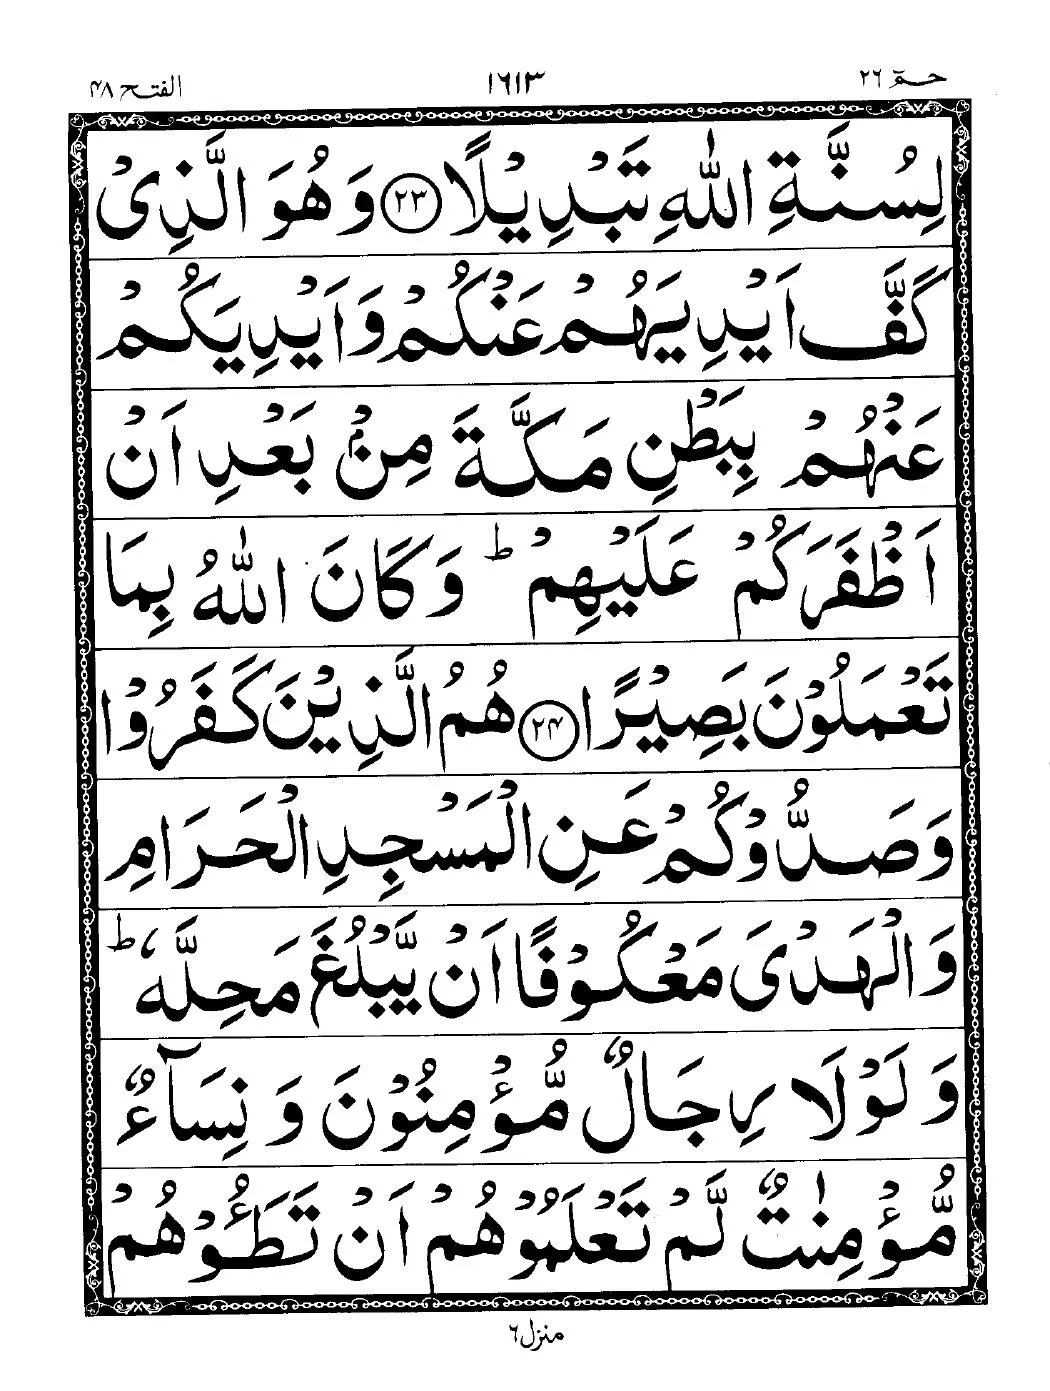 حٰمٓ ۲۶ ۱۶۱۳ الفتح ۴۸
لِسُنَّةِ اللّٰهِ تَبْدِیْلًا ﴿۲۳﴾ وَ هُوَ الَّذِیْ
كَفَّ اَیْدِیَهُمْ عَنْكُمْ وَ اَیْدِیَكُمْ
عَنْهُمْ بِبَطْنِ مَكَّةَ مِنْۢ بَعْدِ اَنْ
اَظْفَرَكُمْ عَلَیْهِمْ ؕ وَ كَانَ اللّٰهُ بِمَا
تَعْمَلُوْنَ بَصِیْرًا ﴿۲۴﴾ هُمُ الَّذِیْنَ كَفَرُوْا
وَ صَدُّوْكُمْ عَنِ الْمَسْجِدِ الْحَرَامِ
وَ الْهَدْیَ مَعْكُوْفًا اَنْ یَّبْلُغَ مَحِلَّهٗ ؕ
وَ لَوْ لَا رِجَالٌ مُّؤْمِنُوْنَ وَ نِسَآءٌ
مُّؤْمِنٰتٌ لَّمْ تَعْلَمُوْهُمْ اَنْ تَطَـُٔوْهُمْ
منزل ۶